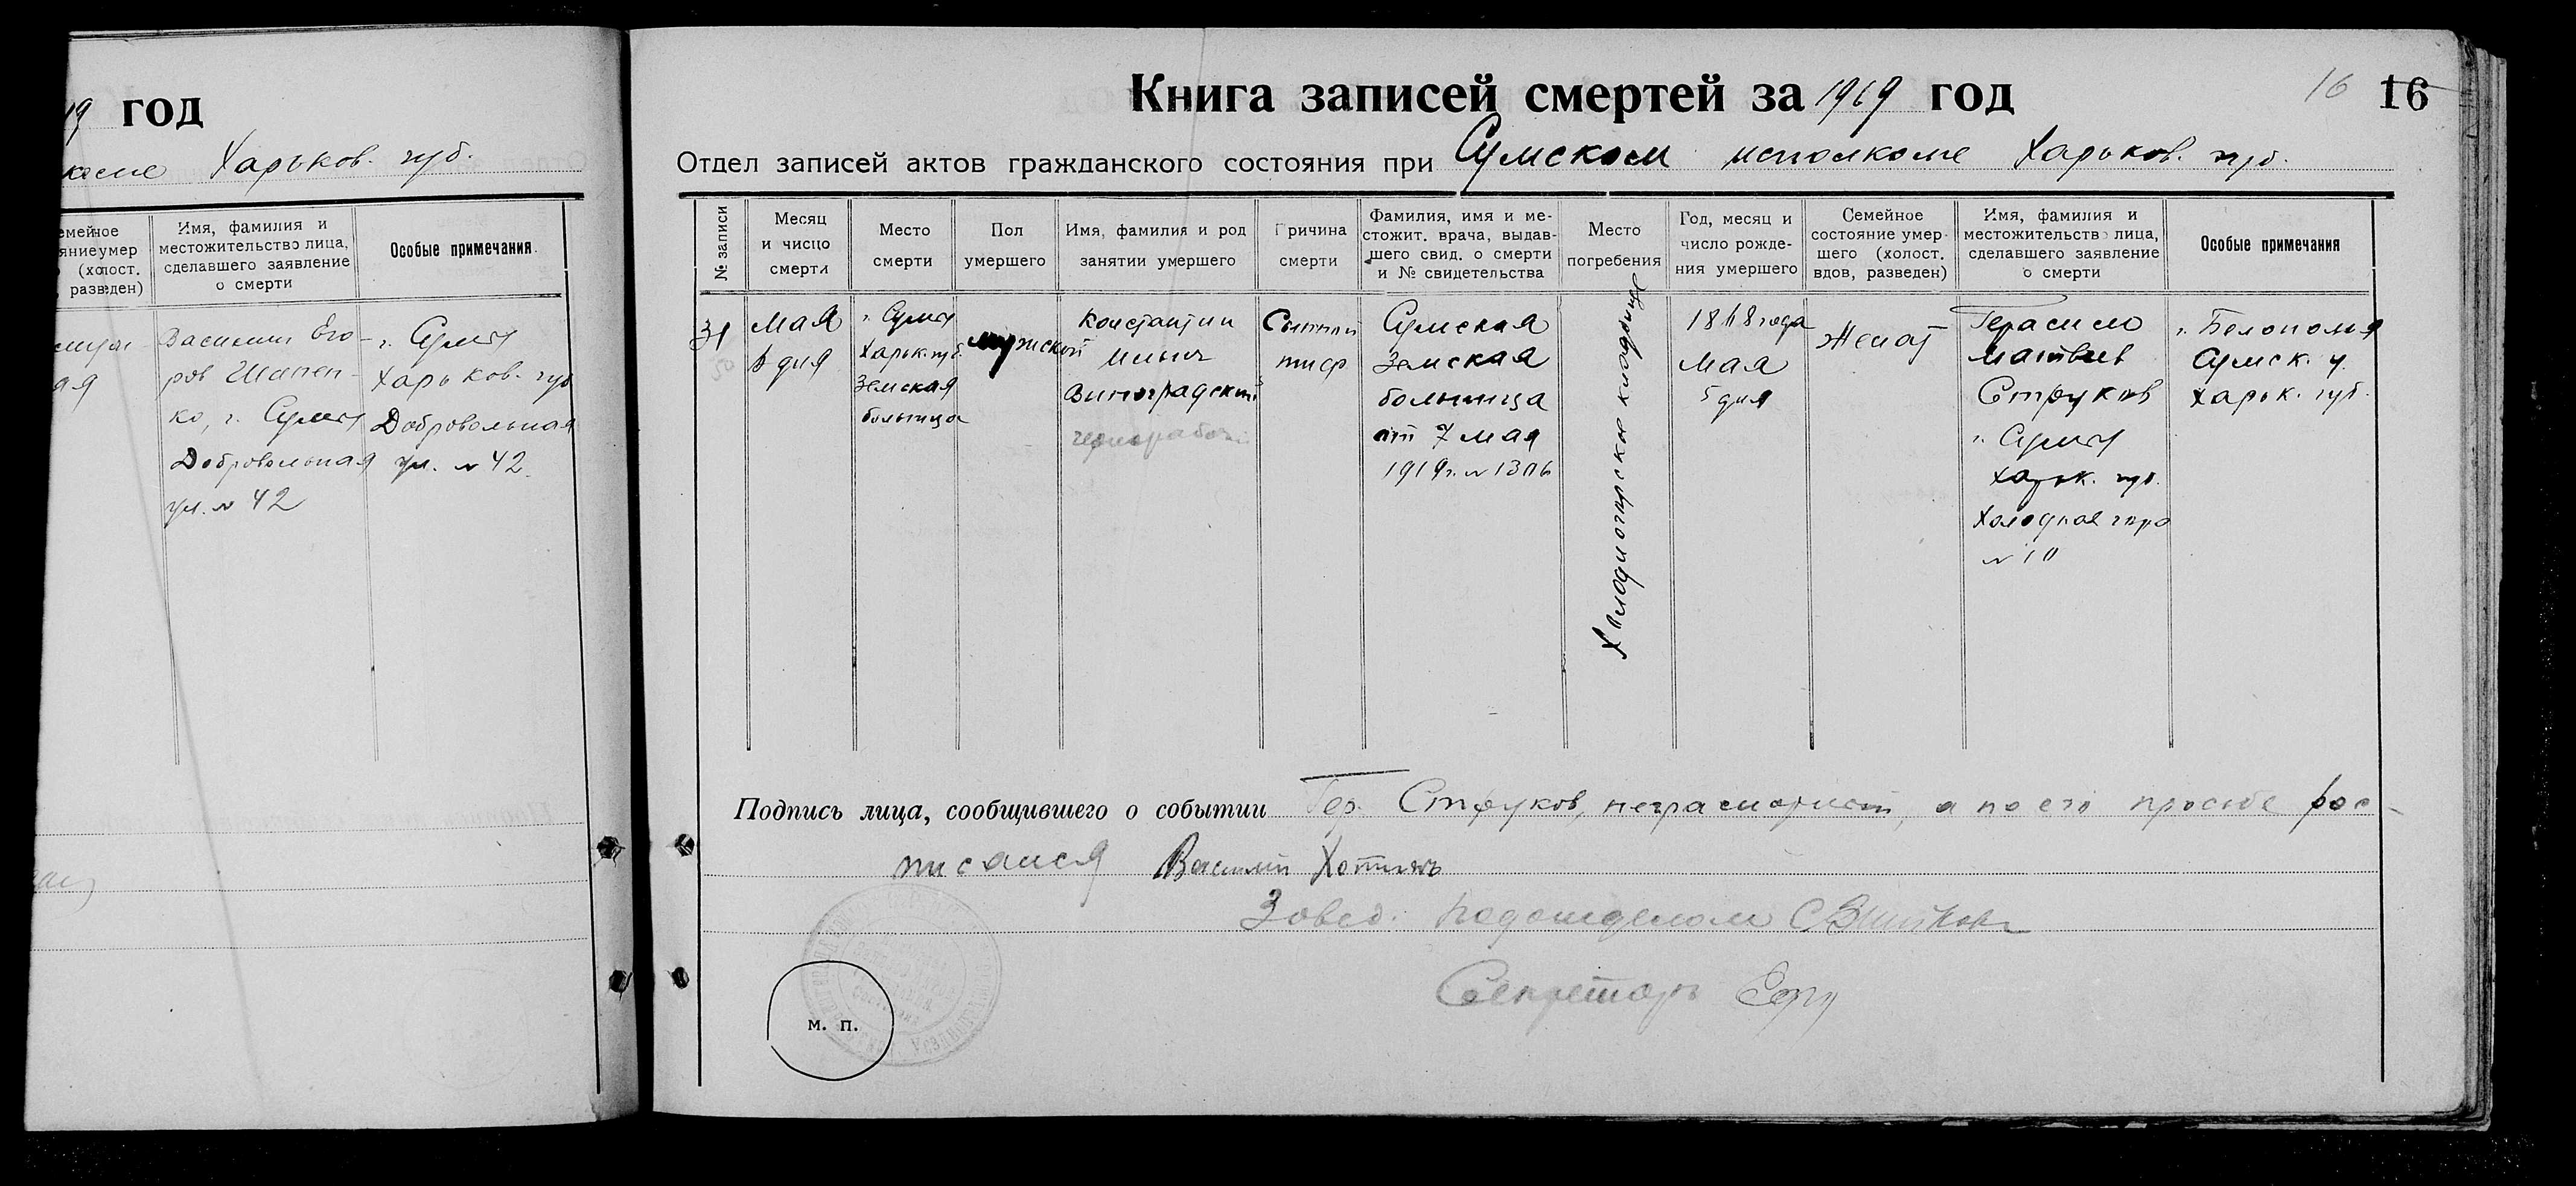 19 год
Харьков. губ.
Имя, фамилия и
местожительство лица,
сделавшего заявление
о смерти
Особые примечания.
(холост.
разведен)
Василий Его-
ров Шапен-
ко, г. Сумы
Добровольная
ул. № 42
г. Сумы
Харьков. губ
Добровольная
ул. № 42.
Книга записей смертей за 1919 год
16 16
Отдел записей актов гражданского состояния при Сумском исполкоме Харьков. губ.
№ записи
Месяц
и число
смерти
Место
смерти
Пол
умершего
Имя, фамилия и род
занятии умершего
Причина
смерти
Фамилия, имя и ме-
стожит. врача, выдав-
шего свид. о смерти
и № свидетельства
Место
погребения
Год, месяц и
число рожде-
ния умершего
Семейное
состояние умер-
шего (холост.
вдов, разведен)
Имя, фамилия и
местожительство лица,
сделавшего заявление
о смерти
Особые примечания
31
Мая
дня
г. Сумы
Харьк. губ.
Земская
больница
мужской
Константин
Ильич
Виноградский
чернорабочий
Сыпной
тиф
Сумская
Земская
больница
от 7 мая
1919 г. № 1306
Холодногорское кладбище
1868 года
Мая
5 дня
Женат
Герасим
Матвеев
Струков
г. Сумы
Харьк. губ.
Холодная гора
№ 10
г. Белополья
Сумск. у.
Харьк. губ.
Подпись лица, сообщившего о событии Гер. Струков, неграмотный, а по его просьбе рос-
писался Василий
Завед. Подотделом
Секретарь
м. п.